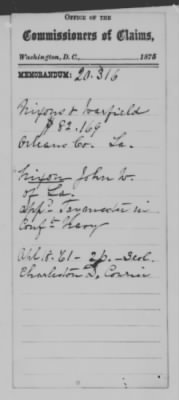 OFFICE OF THE
Commissioners of Claims,
Washington, D. C., 1875
MEMORANDUM: 20.316
Nixons & Warfield
$82.169
Orleans Co. La.
Nixon John W.
of La.
App'd Paymaster in
Conf'te Navy
2p. Scol.
Charleston S. Courier